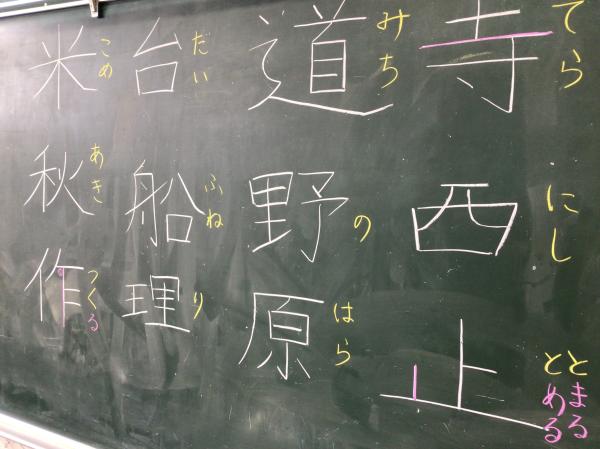 寺 てら
西 にし
止 とまる とめる
道 みち
野 の
原 はら
台 だい
船 ふね
理 り
米 こめ
秋 あき
作 つくる